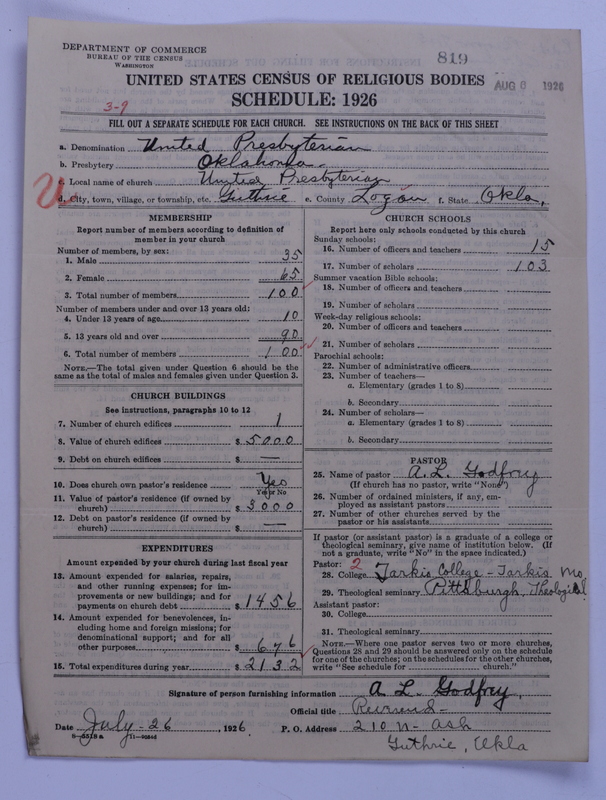 DEPARTMENT OF COMMERCE
BUREAU OF THE CENSUS
WASHINGTON
819
AUG 6 1926
UNITED STATES CENSUS OF RELIGIOUS BODIES
SCHEDULE: 1926
3-9
FILL OUT A SEPARATE SCHEDULE FOR EACH CHURCH. SEE INSTRUCTIONS ON THE BACK OF THIS SHEET
a. Denomination United Presbyterian
b. Presbytery Oklahoma
c. Local name of church United Presbyterian
d. City, town, village, or township, etc. Guthrie e. County Logan f. State Okla.
MEMBERSHIP
Report number of members according to definition of
member in your church
Number of members, by sex:
1. Male 35
2. Female 65
3. Total number of members 100
Number of members under and over 13 years old:
4. Under 13 years of age 10
5. 13 years old and over 90
6. Total number of members 100
NOTE.—The total given under Question 6 should be the
same as the total of males and females given under Question 3.
CHURCH BUILDINGS
See instructions, paragraphs 10 to 12
7. Number of church edifices 1
8. Value of church edifices $ 5000
9. Debt on church edifices $ —
10. Does church own pastor's residence Yes
Yes or No
11. Value of pastor's residence (if owned by
church) $ 3000
12. Debt on pastor's residence (if owned by
church) $ —
EXPENDITURES
Amount expended by your church during last fiscal year
13. Amount expended for salaries, repairs,
and other running expenses; for im-
provements or new buildings; and for
payments on church debt $ 1456
14. Amount expended for benevolences, in-
cluding home and foreign missions; for
denominational support; and for all
other purposes $ 676
15. Total expenditures during year $ 2132
CHURCH SCHOOLS
Report here only schools conducted by this church
Sunday schools:
16. Number of officers and teachers 15
17. Number of scholars 103
Summer vacation Bible schools:
18. Number of officers and teachers
19. Number of scholars
Week-day religious schools:
20. Number of officers and teachers
21. Number of scholars
Parochial schools:
22. Number of administrative officers
23. Number of teachers—
a. Elementary (grades 1 to 8)
b. Secondary
24. Number of scholars—
a. Elementary (grades 1 to 8)
b. Secondary
PASTOR
25. Name of pastor A. L. Godfrey
(If church has no pastor, write "None")
26. Number of ordained ministers, if any, em-
ployed as assistant pastors
27. Number of other churches served by the
pastor or his assistants
If pastor (or assistant pastor) is a graduate of a college or
theological seminary, give name of institution below. (If
not a graduate, write "No" in the space indicated.)
Pastor: 2
28. College Tarkio College - Tarkio Mo.
29. Theological seminary Pittsburgh Theological
Assistant pastor:
30. College
31. Theological seminary
NOTE.—Where one pastor serves two or more churches,
Questions 28 and 29 should be answered only on the schedule
for one of the churches; on the schedules for the other churches,
write "See schedule for church."
Signature of person furnishing information A L Godfrey
Official title Reverend
Date July-26 1926 P. O. Address 210 N- Ash
Guthrie, Okla